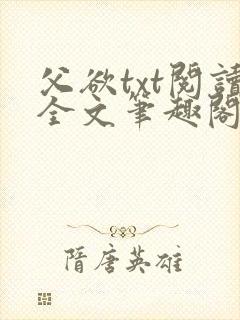 父欲txt閱讀
全文筆趣閣
隋唐英雄